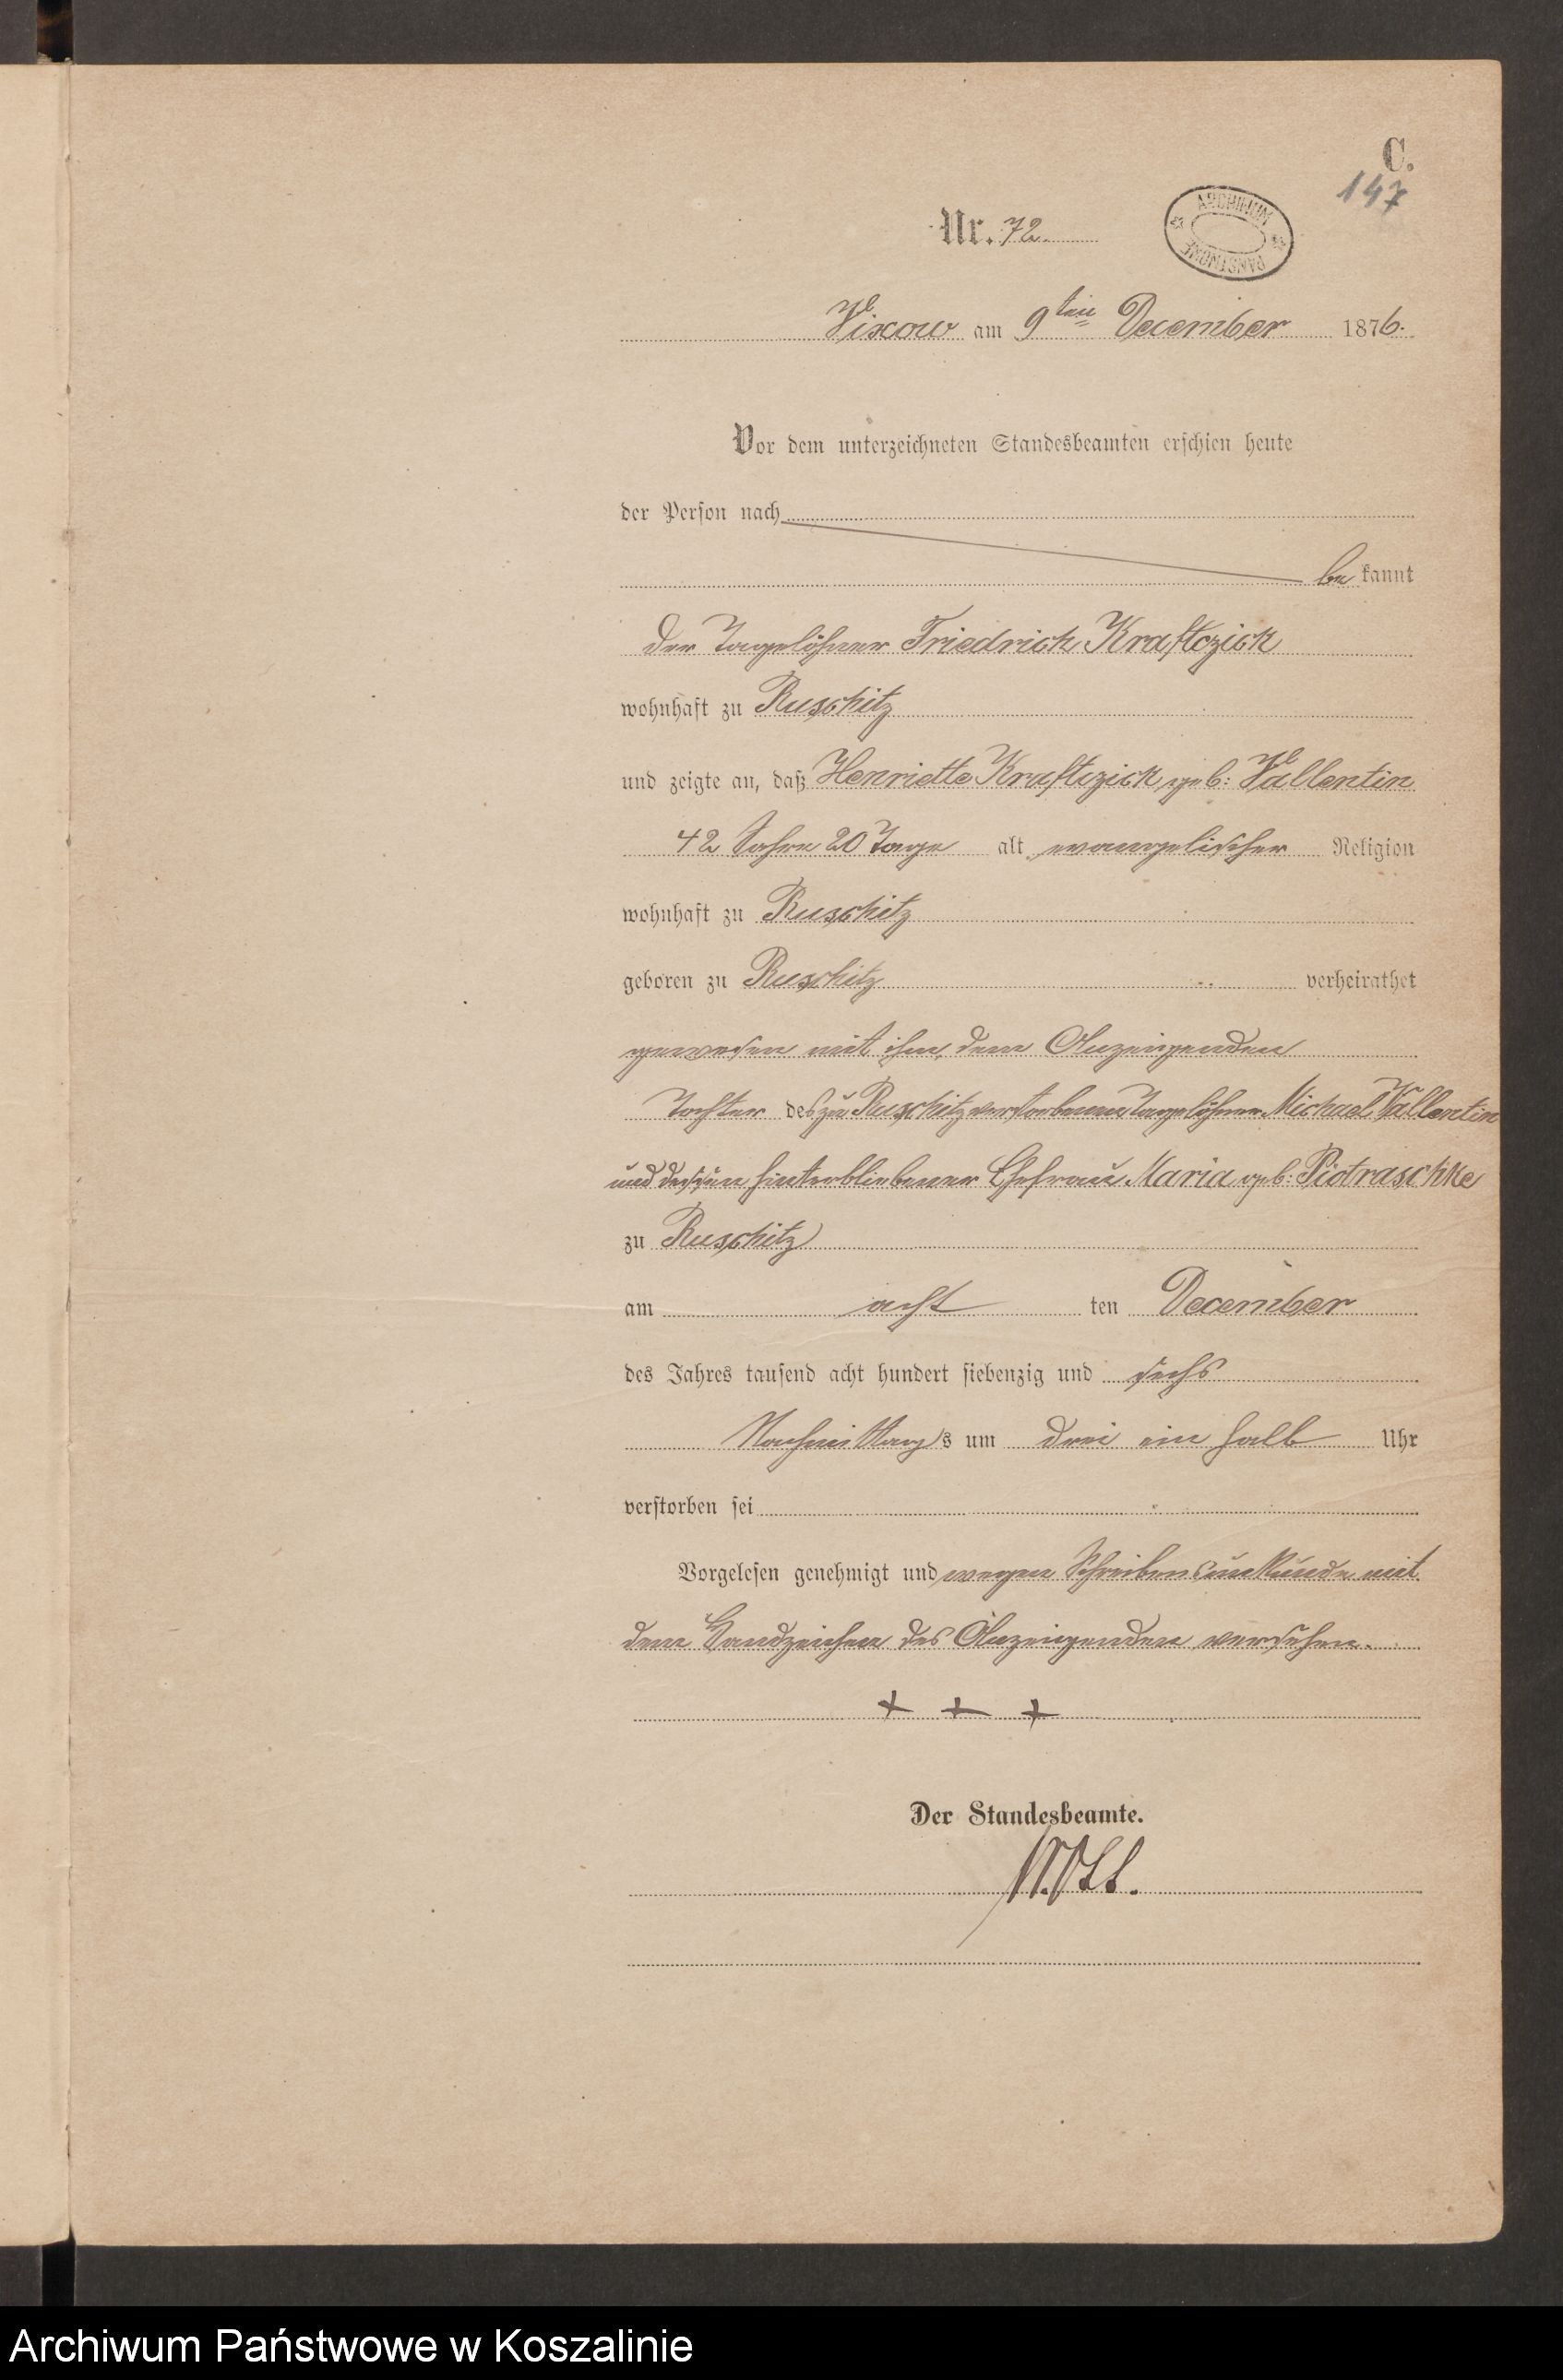 C.
147
Nr. 72.
ARCHIWUM PAŃSTWOWE
Vixow am 9ten December 1876.
Vor dem unterzeichneten Standesbeamten erschien heute
der Person nach
be kannt
der Tagelöhner Friedrich Kraftczick
wohnhaft zu Ruschitz
und zeigte an, daß Henriette Kraftczick geb: Vallentin
42 Jahre 20 Tage alt, evangelischer Religion
wohnhaft zu Ruschitz
geboren zu Ruschitz verheirathet
gewesen mit ihm, dem Anzeigenden
Tochter des zu Ruschitz verstorbenen Tagelöhner Michael Vallentin
und dessen hinterbliebener Ehefrau Maria geb: Piotraschke
zu Ruschitz
am acht ten December
des Jahres tausend acht hundert siebenzig und sechs
Nachmittags um drei ein halb Uhr
verstorben sei
Vorgelesen genehmigt und wegen Schreibensunkunde mit
dem Handzeichen des Anzeigenden versehen.
+ + +
Der Standesbeamte.
Archiwum Państwowe w Koszalinie